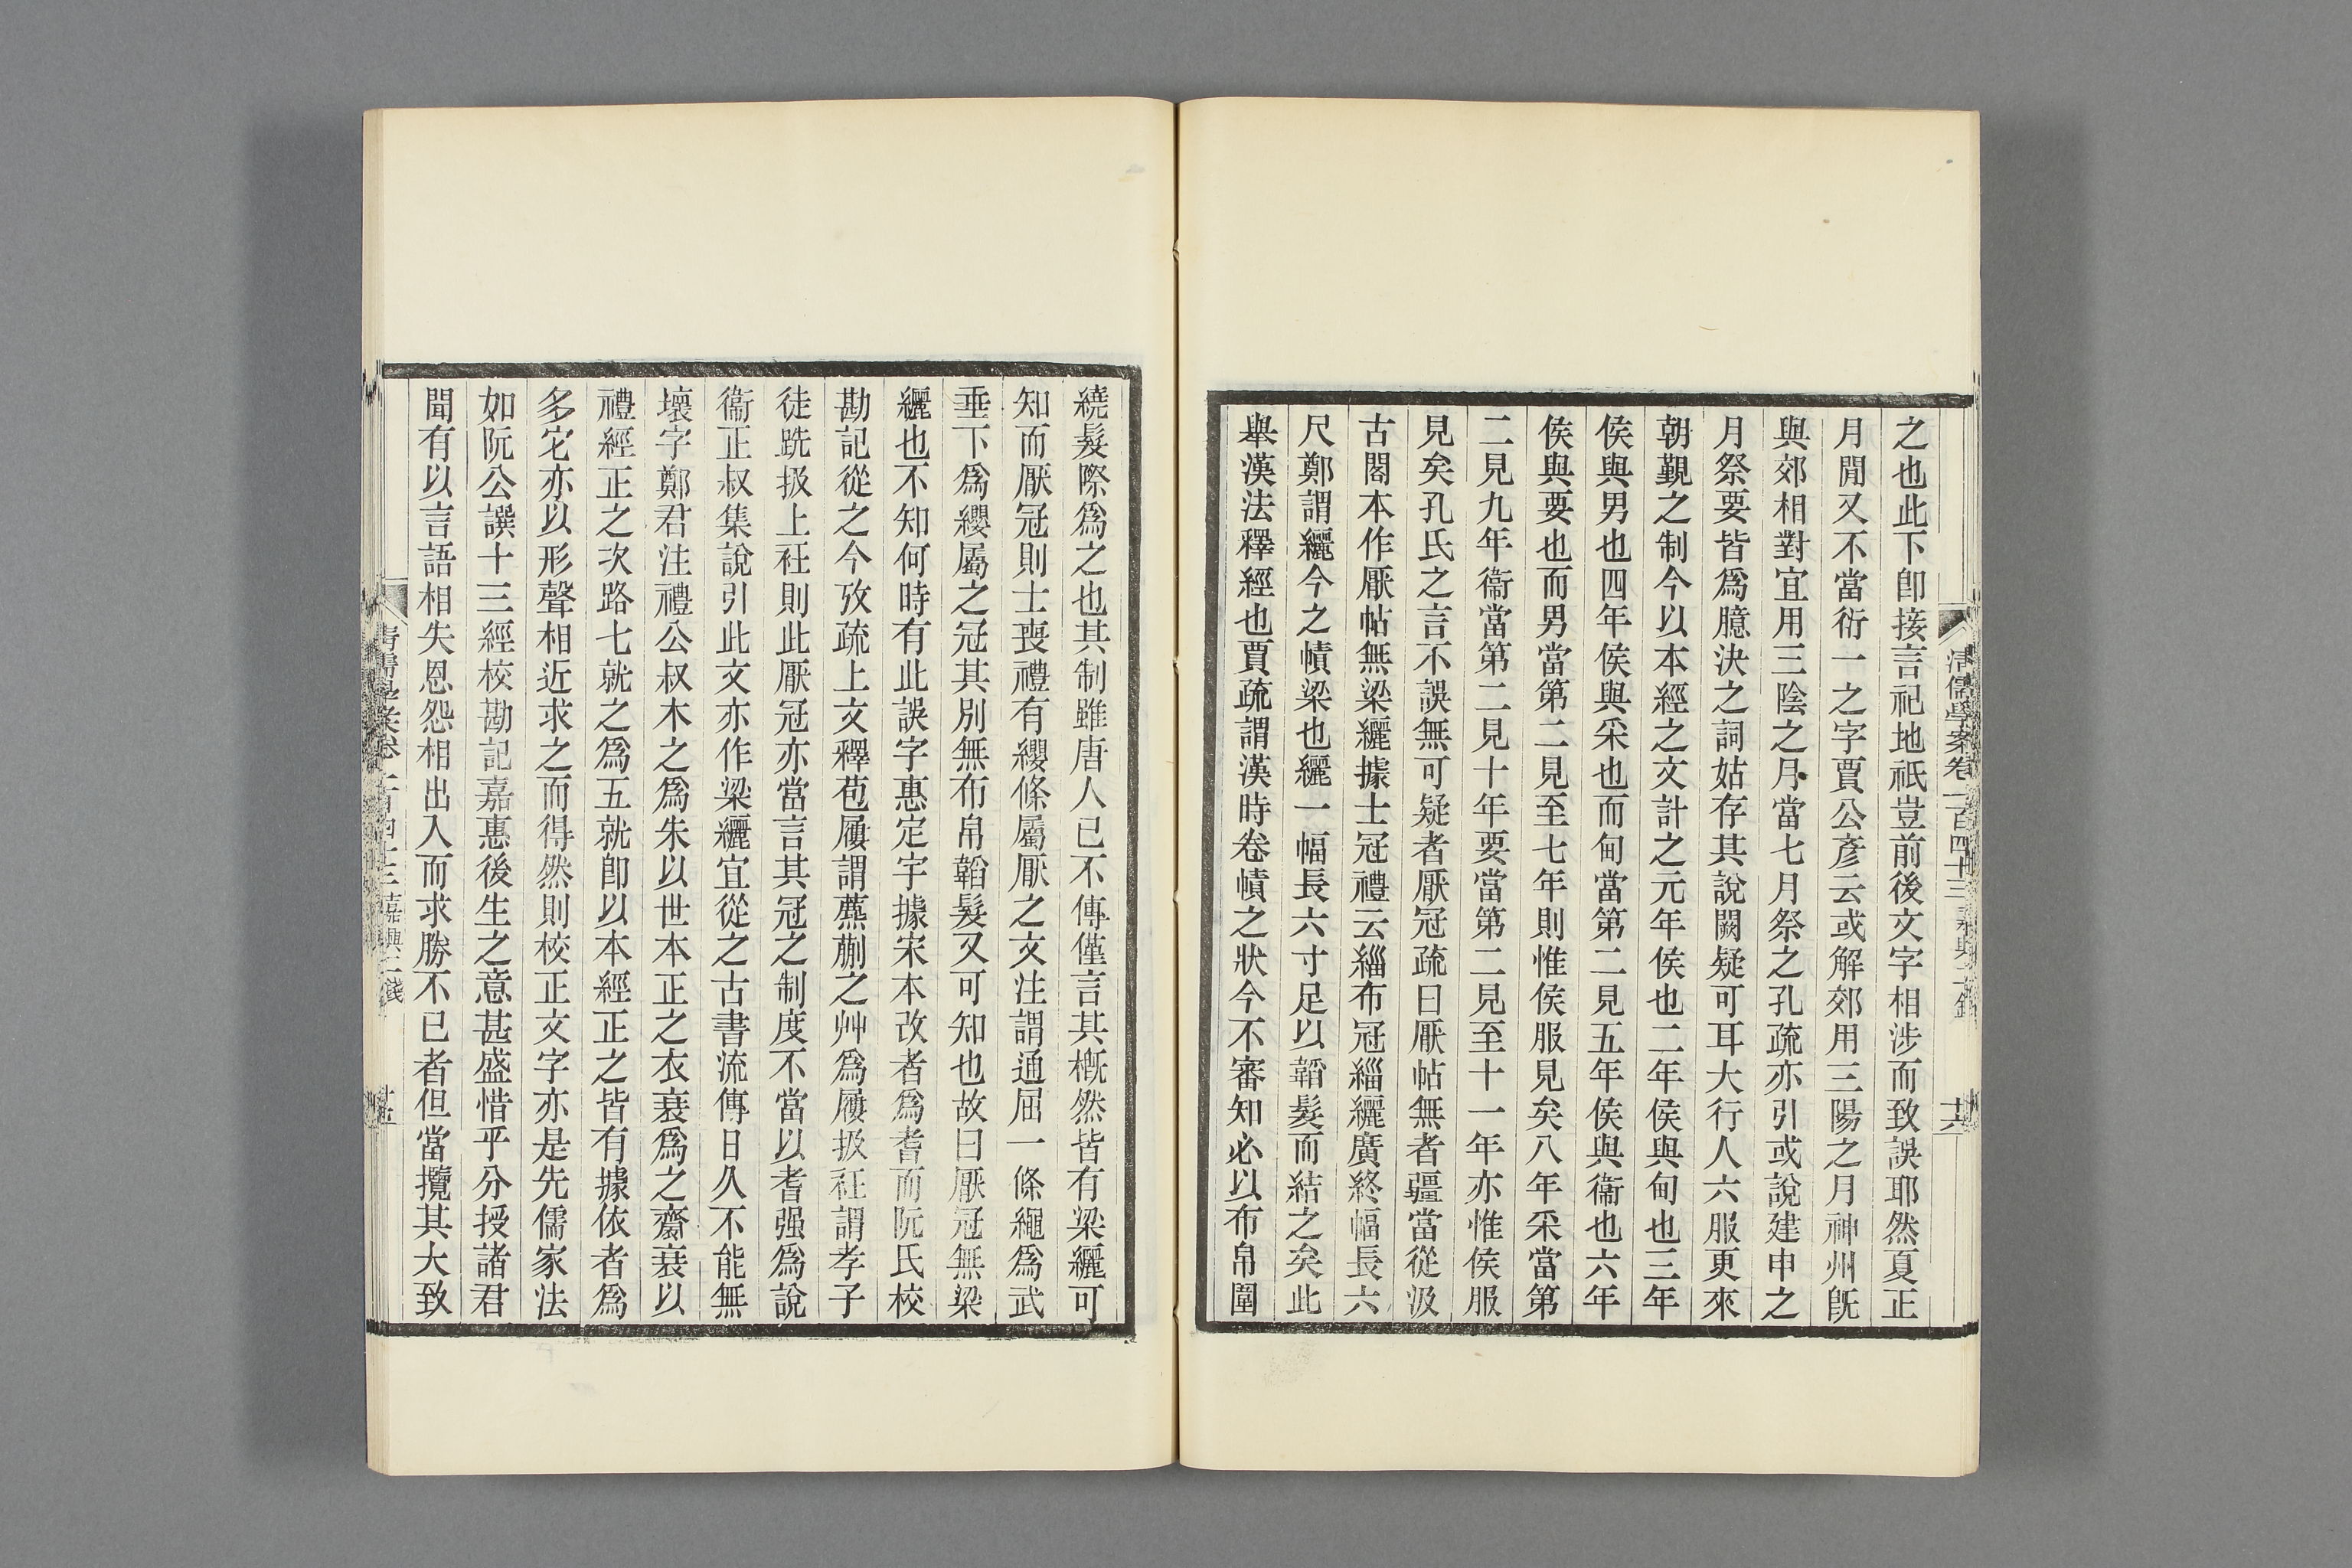 清儒學案卷一百四十三 嘉興二錢
之也此下卽接言祀地祇豈前後文字相涉而致誤耶然夏正
月閒又不當衍一之字賈公彥云或解郊用三陽之月神州旣
與郊相對宜用三陰之月當七月祭之孔疏亦引或說建申之
月祭要皆爲臆決之詞姑存其說闕疑可耳大行人六服更來
朝覲之制今以本經之文計之元年侯也二年侯與甸也三年
侯與男也四年侯與采也而甸當第二見五年侯與衞也六年
侯與要也而男當第二見至七年則惟侯服見矣八年采當第
二見九年衞當第二見十年要當第二見至十一年亦惟侯服
見矣孔氏之言不誤無可疑者厭冠疏曰厭帖無者彊當從汲
古閣本作厭帖無梁纚據士冠禮云緇布冠緇纚廣終幅長六
尺鄭謂纚今之幘梁也纚一幅長六寸足以韜髮而結之矣此
舉漢法釋經也賈疏謂漢時卷幘之狀今不審知必以布帛圍
繞髮際爲之也其制雖唐人已不傳僅言其槪然皆有梁纚可
知而厭冠則士喪禮有纓條屬厭之文注謂通屈一條繩爲武
垂下爲纓屬之冠其別無布帛韜髮又可知也故曰厭冠無梁
纚也不知何時有此誤字惠定宇據宋本改者爲耆而阮氏校
勘記從之今攷疏上文釋苞屨謂藨蒯之艸爲屨扱衽謂孝子
徒跣扱上衽則此厭冠亦當言其冠之制度不當以耆强爲說
衞正叔集說引此文亦作梁纚宜從之古書流傳日久不能無
壞字鄭君注禮公叔木之爲朱以世本正之衣衰爲之齋衰以
禮經正之次路七就之爲五就卽以本經正之皆有據依者爲
多它亦以形聲相近求之而得然則校正文字亦是先儒家法
如阮公譔十三經校勘記嘉惠後生之意甚盛惜乎分授諸君
聞有以言語相失恩怨相出入而求勝不已者但當攬其大致